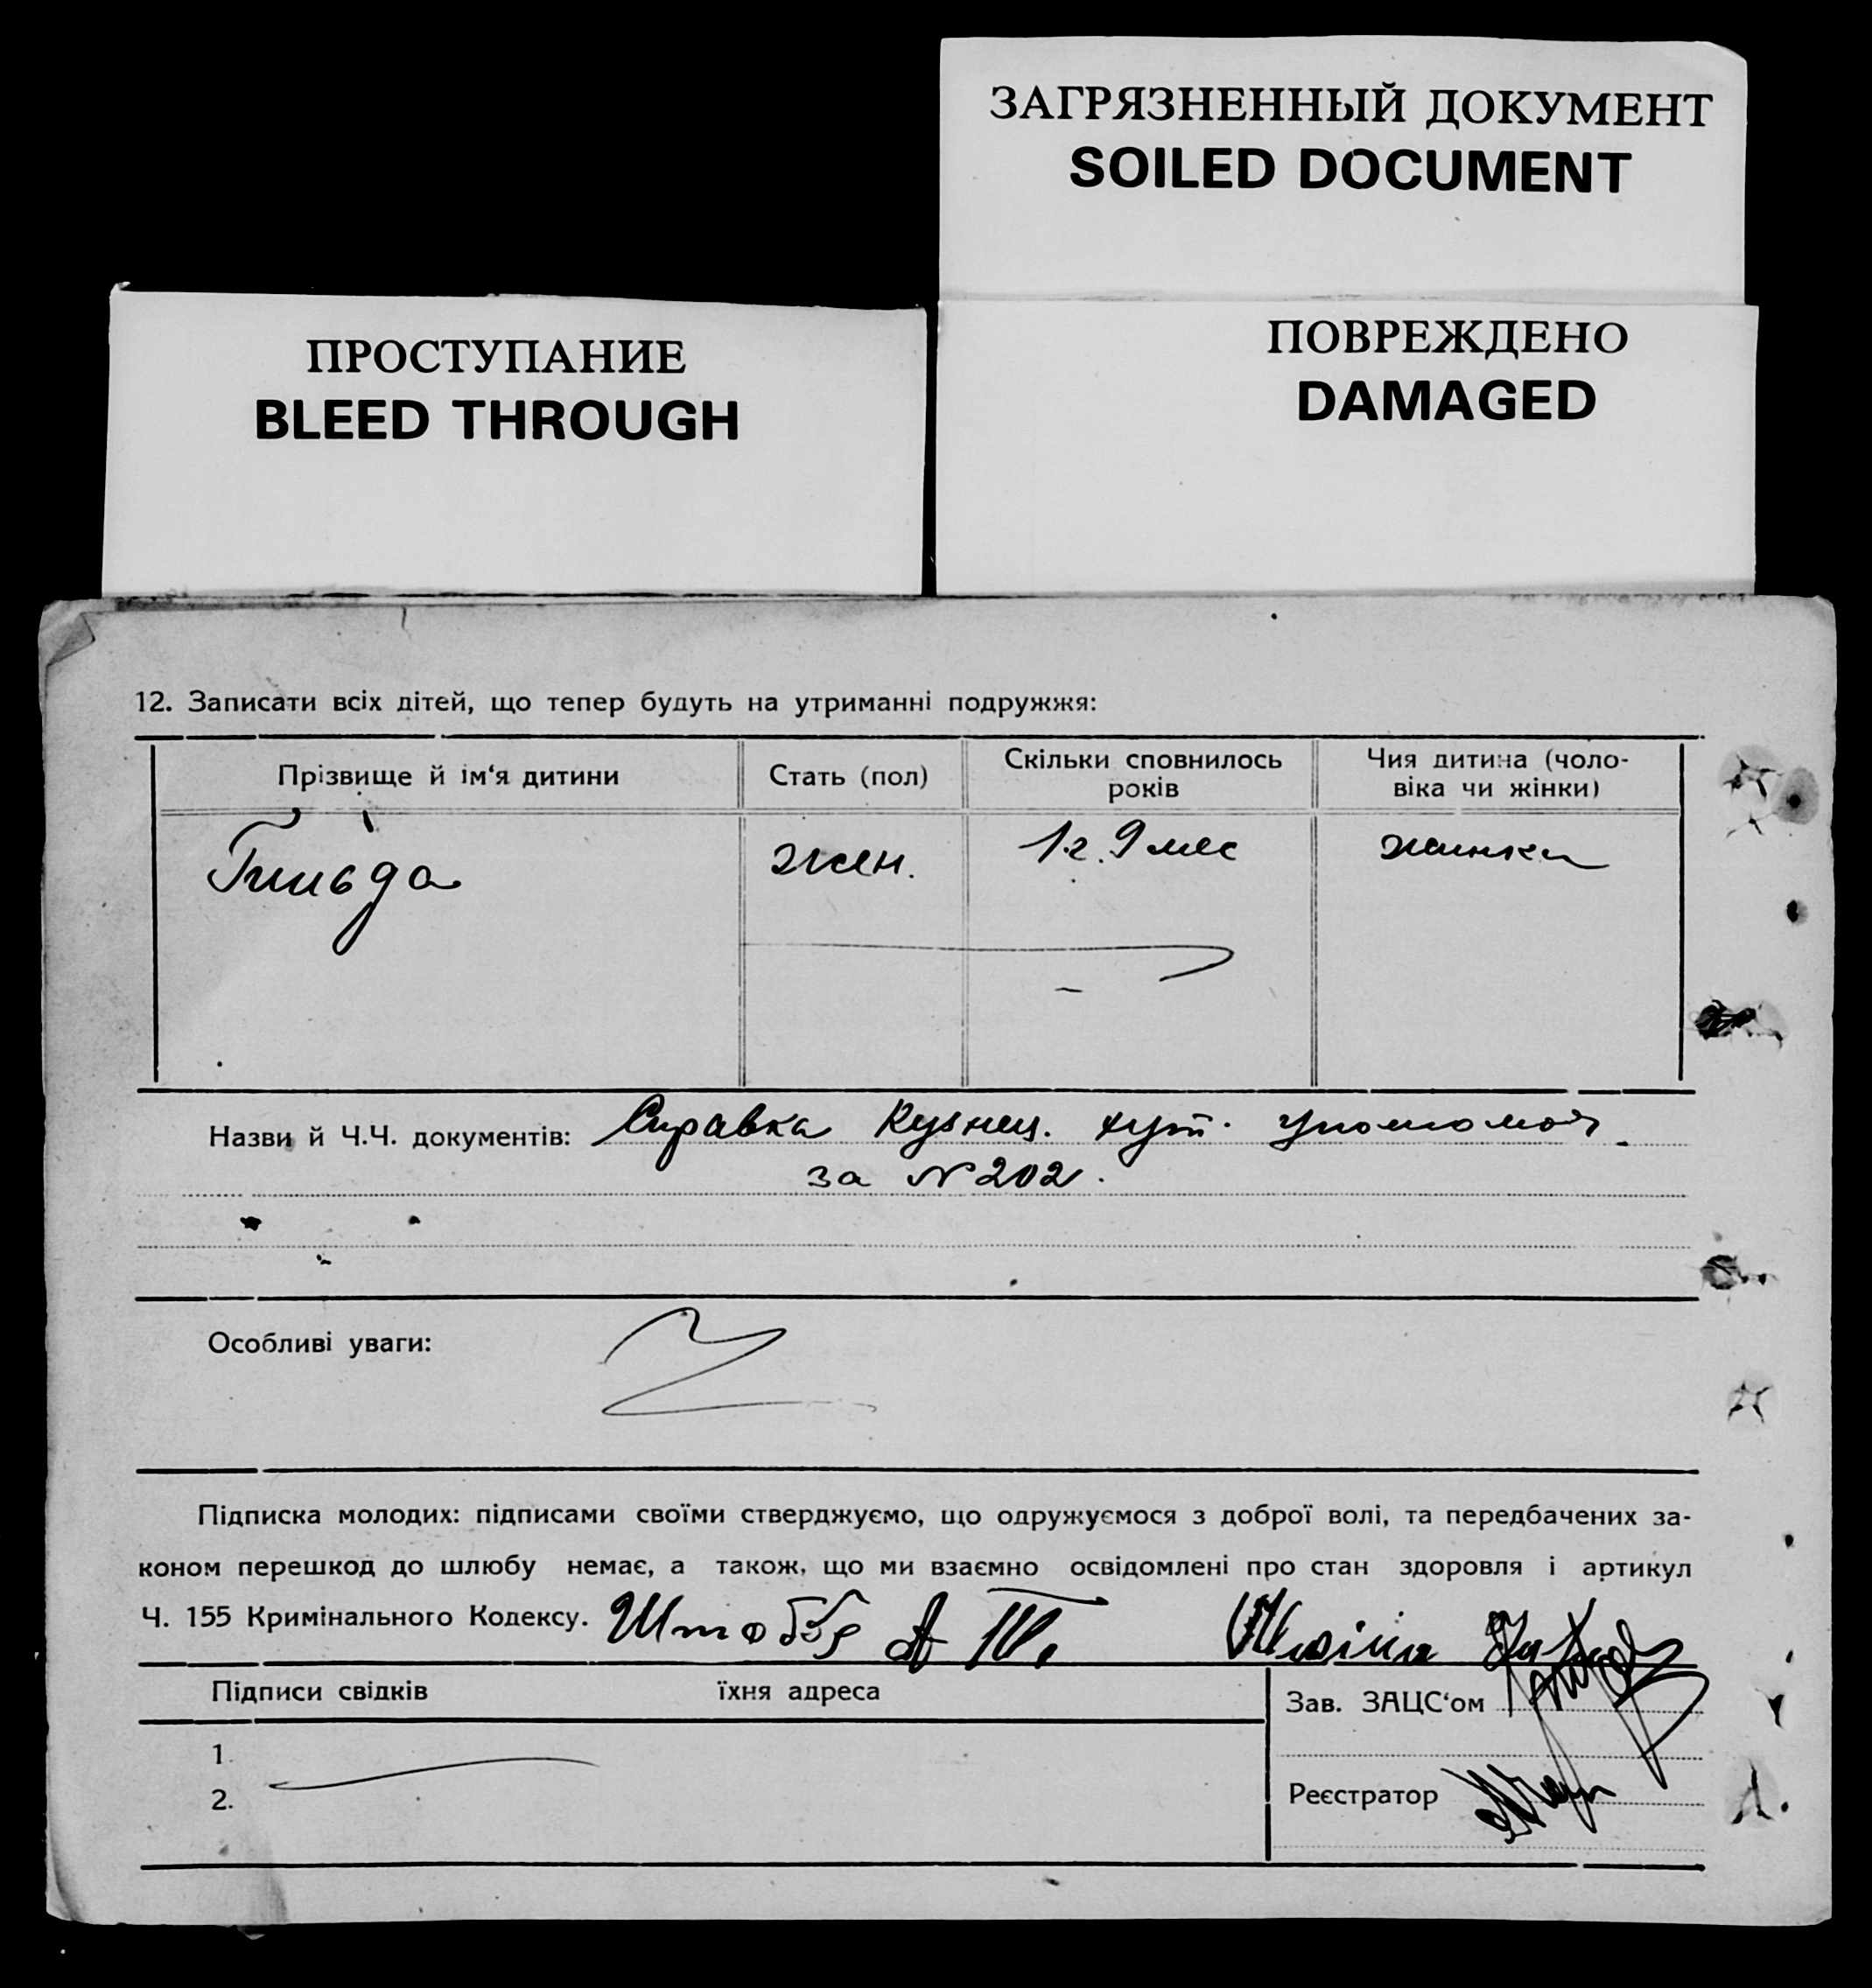 ЗАГРЯЗНЕННЫЙ ДОКУМЕНТ
SOILED DOCUMENT
ПРОСТУПАНИЕ
BLEED THROUGH
ПОВРЕЖДЕНО
DAMAGED
12. Записати всіх дітей, що тепер будуть на утриманні подружжя:
Прізвище й ім'я дитини
Стать (пол)
Скільки сповнилось
років
Чия дитина (чоло-
віка чи жінки)
Гильда
жен.
1 г. 9 мес
жинки
Назви й Ч.Ч. документів: Справка Кузнец. хут.
за № 202.
Особливі уваги:
Підписка молодих: підписами своїми стверджуємо, що одружуємося з доброї волі, та передбачених за-
коном перешкод до шлюбу немає, а також, що ми взаємно освідомлені про стан здоров‌ля і артикул
Ч. 155 Кримінального Кодексу.
Підписи свідків
їхня адреса
Зав. ЗАЦС'ом
1.
2.
Реєстратор